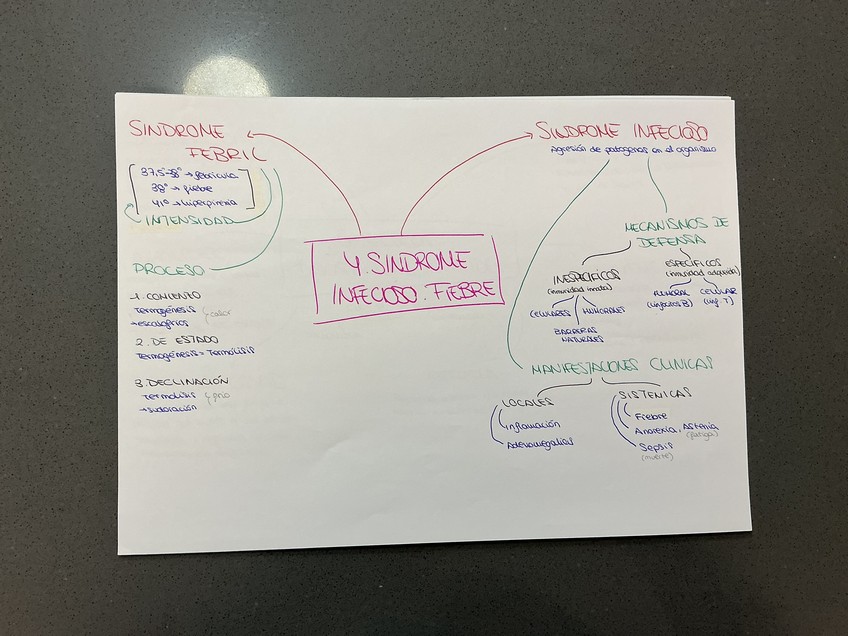 SINDROME
FEBRIL
37,5-38° → febricula
38° → fiebre
41° → hiperpirexia
INTENSIDAD
PROCESO
1. COMIENZO
Termogénesis
→ escalofrios
2. DE ESTADO
Termogénesis = Termólisis
3. DECLINACIÓN
Termólisis
→ sudoración
4. SINDROME
INFECIOSO. FIEBRE
SINDROME INFECIOSO
Agresión de patogenos en el organismo
MECANISMOS DE
DEFENSA
INESPECIFICOS
(inmunidad innata)
CELULARES
HUMORALES
BARRERAS
NATURALES
ESPECÍFICOS
(inmunidad adquirida)
HUMORAL
(linfocitos B)
CELULAR
(linf. T)
MANIFESTACIONES CLINICAS
LOCALES
Inflamación
Adenomegalias
SISTEMICAS
Fiebre
Anorexia, Astenia
(fatiga)
Sepsis
(muerte)